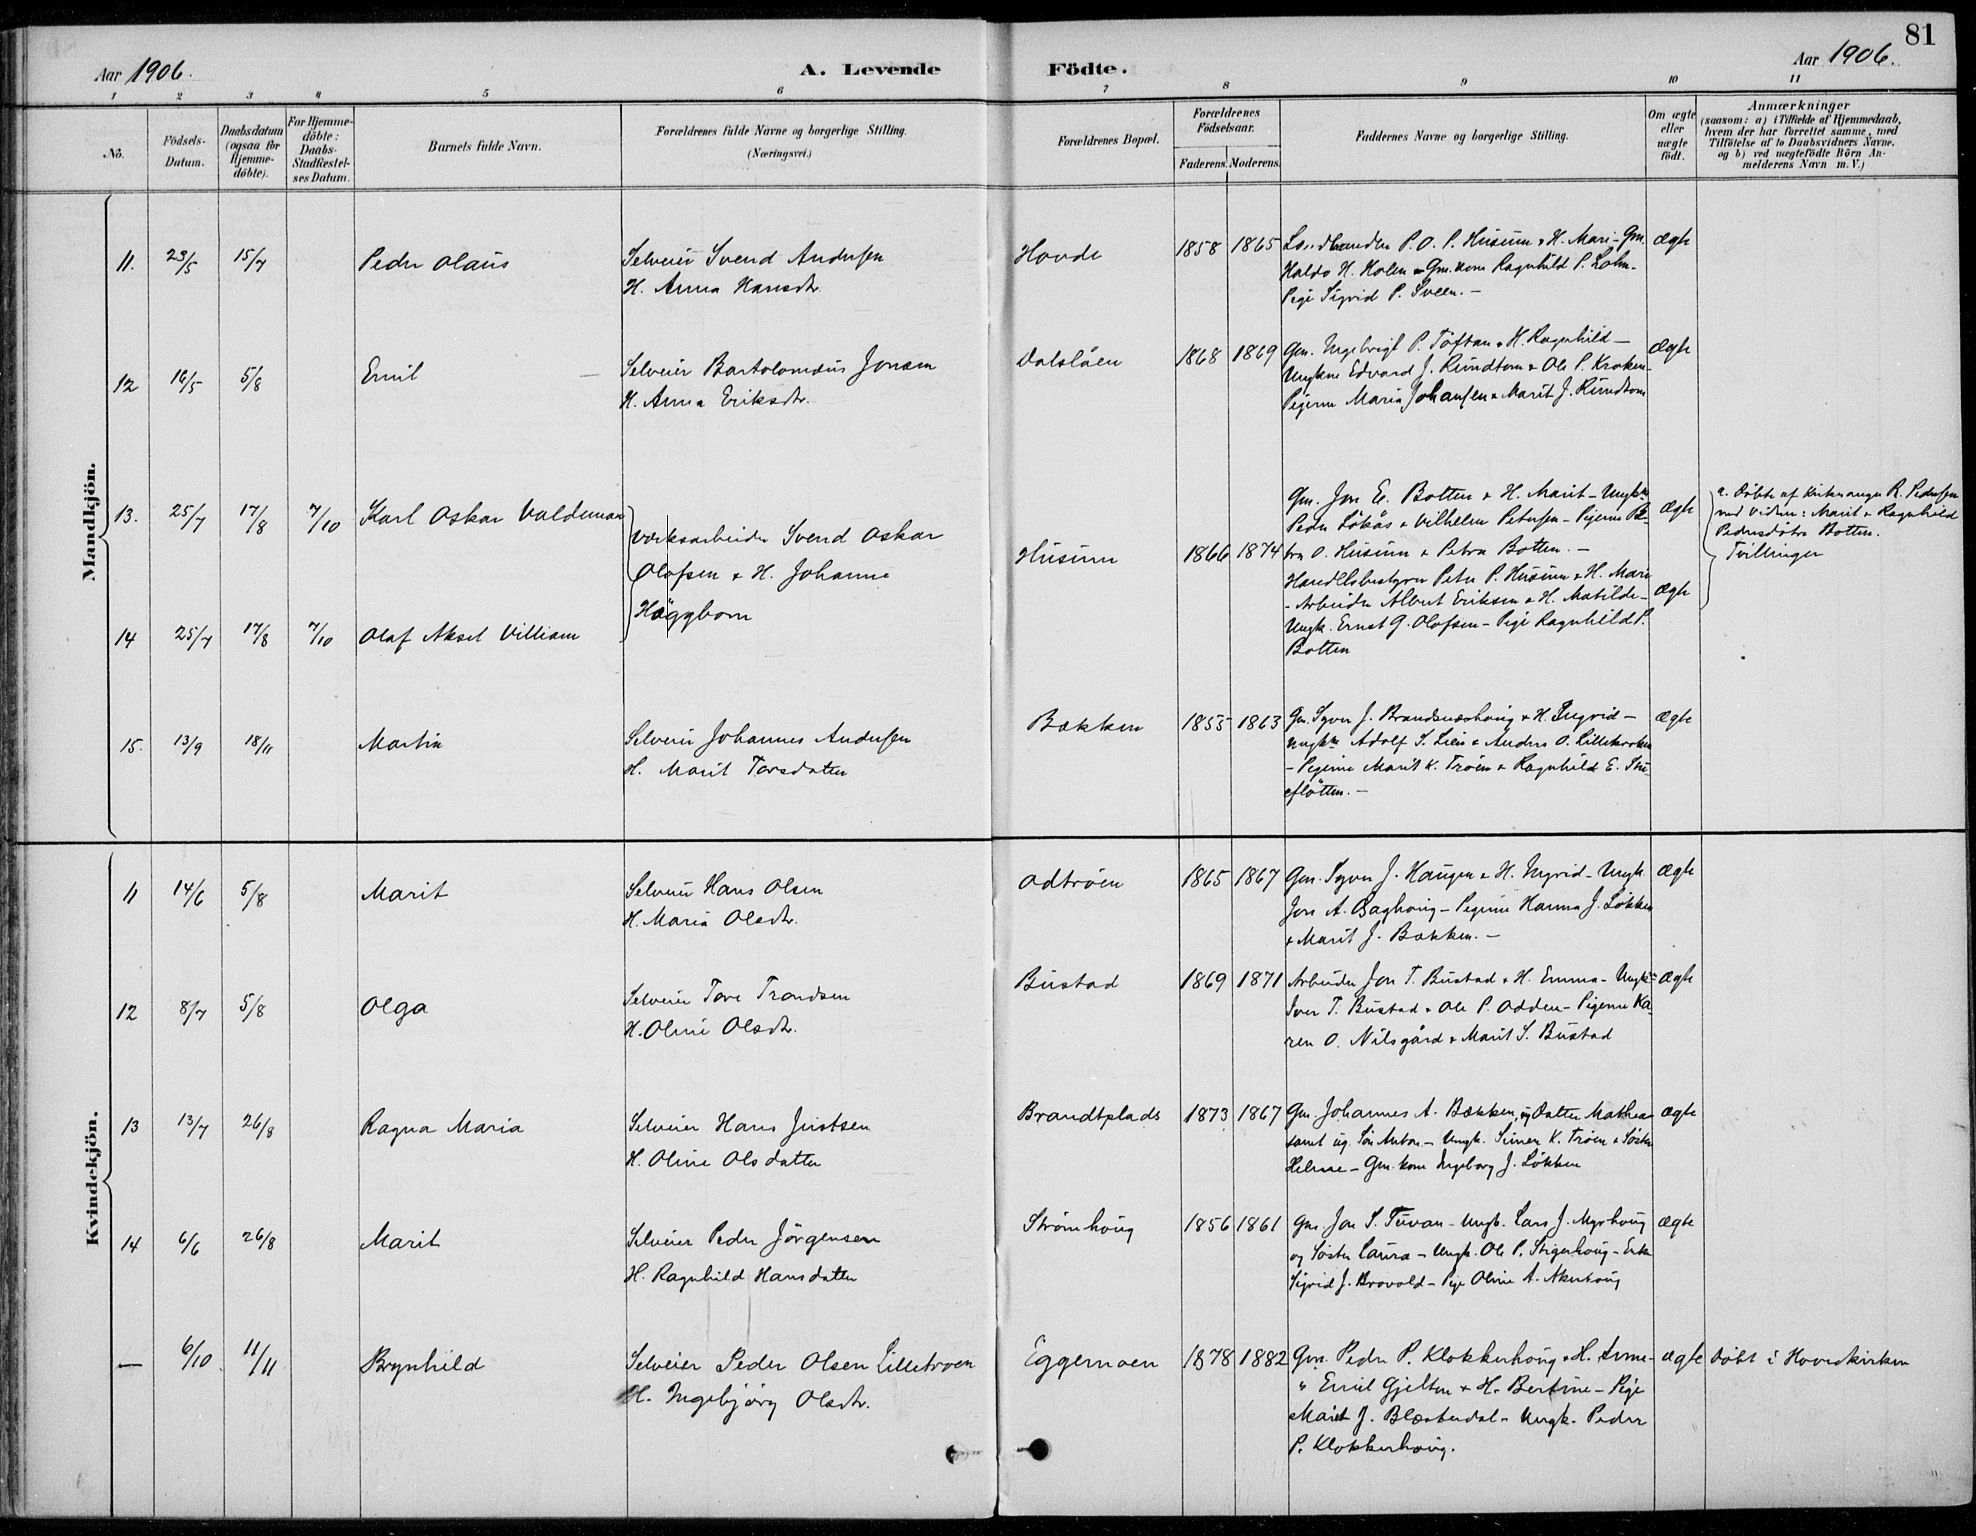 81
Aar 1906.
A. Levende Födte.
Aar 1906.
1 2 3 4 5 6 7 8 9 10 11
No.
Födsels-
Datum.
Daabsdatum
(ogsaa for
Hjemme-
döbte).
For Hjemme-
döbte:
Daabs-
Stadfæstel-
ses Datum.
Barnets fulde Navn.
Forældrenes fulde Navne og borgerlige Stilling.
(Næringsvei.)
Forældrenes Bopæl.
Forældrenes
Födselsaar.
Faderens. Moderens.
Faddernes Navne og borgerlige Stilling.
Om ægte
eller
uægte
födt.
Anmærkninger
(saasom: a) i Tilfælde af Hjemmedaab,
hvem der har forrettet samme, med
Tilföielse af to Daabsvidners Navne.
og b) ved uægtefödte Börn An-
melderens Navn m. V.)
Mandkjön.
11. 23/5 15/7 Peder Olaus
Selveier Svend Andersen
H. Anna Hansdtr.
Hovde 1858 1865
Landhandler P. O. P. Husum & H. Mari - Gm.
Haldo H. Holen & Gm. kone Ragnhild P. Lohn -
Pige Sigrid P. Sveen. -
Ægte
12 16/5 5/8 Emil
Selveier Bartolomæus Jonsen
H. Anna Eriksdtr.
Dalslåen 1868 1869
Gm. Ingebrigt P. Toftan & H. Ragnhild -
Ungkne Edvard J. Rundtom & Ole P. Kroken -
Pigerne Maria Johansen & Marit J. Rundtom
Ægte
13. 25/7 17/8 7/10 Karl Oskar Valdemar
Værksarbeider Svend Oskar
Olofsen & H. Johanne
Häggbom
Husum 1866 1874
Gm. Jon E. Botten & H. Marit - Ungkne
Peder Lökås & Vilhelm Petersen - Pigerne Pe-
tra O. Husum & Petra Botten. -
Handelsbestyrer Peter P. Husum & H. Mari
- Arbeider Albert Eriksen & H. Matilde -
Ungk. Ernst G. Olofsen - Pige Ragnhild P.
Botten
Ægte
Ægte
a. Døbt af Kirkesanger R. Pedersen
med Vidner: Marit & Ragnhild
Pedersdøtre Botten.
Tvillinger
14 25/7 17/8 7/10 Olaf Aksel Villiam
15. 13/9 18/11 Martin
Selveier Johannes Andersen
H. Marit Torsdatter
Bækken 1855 1863
Gm. Syver J. Brandsneshoug & H. Ingrid -
Ungkne Adolf S. Lien & Anders O. Lillekroken
- Pigerne Marit K. Trøen & Ragnhild E. Stu-
efløtten. -
Ægte
Kvindekjön.
11 14/6 5/8 Marit
Selveier Hans Olsen
H. Maria Olsdtr.
Odtrøen 1865 1867
Gm. Syver J. Haugen & H. Ingrid - Ungk.
Jon A. Baghoug - Pigerne Hanna J. Løkken
& Marit J. Bakken. -
Ægte
12 8/7 5/8 Olga
Selveier Tore Trondsen
H. Oline Olsdtr.
Bustad 1869 1871
Arbeider Jon T. Bustad & H. Emma - Ungkne
Iver T. Bustad & Ole P. Odden - Pigerne Ka-
ren O. Nilsgård & Marit S. Bustad
Ægte
13 13/7 26/8 Ragna Maria
Selveier Hans Justsen
H. Oline Olsdatter
Brandtplads 1873 1867
Gm. Johannes A. Bækken, og Datter Mathea
samt ug. Søn Anton - Ungk. Simen K. Trøen & Søster
Helene - Gm. kone Ingeborg J. Løkken
Ægte
14 6/6 26/8 Marit
Selveier Peder Jörgensen
H. Ragnhild Hansdatter
Strømhoug 1856 1861
Gm. Jon S. Tuvan - Ungk. Lars J. Myrhoug
og Søster Laura - Ungk. Ole P. Stigerhoug - Enke
Sigrid J. Brovold - Pige Oline A. Akerhoug
Ægte
— 6/10 11/11 Brynhild
Selveier Peder Olsen Lilletroen
H. Ingebjörg Olsdtr.
Eggemoen 1878 1882
Gm. Peder P. Klokkerhoug & H. Anne -
" Emil Gjelten & H. Bertine - Pige
Marit J. Blæsterdal - Ungk. Peder
P. Klokkerhoug.
Ægte
Döbt i Hovedkirken